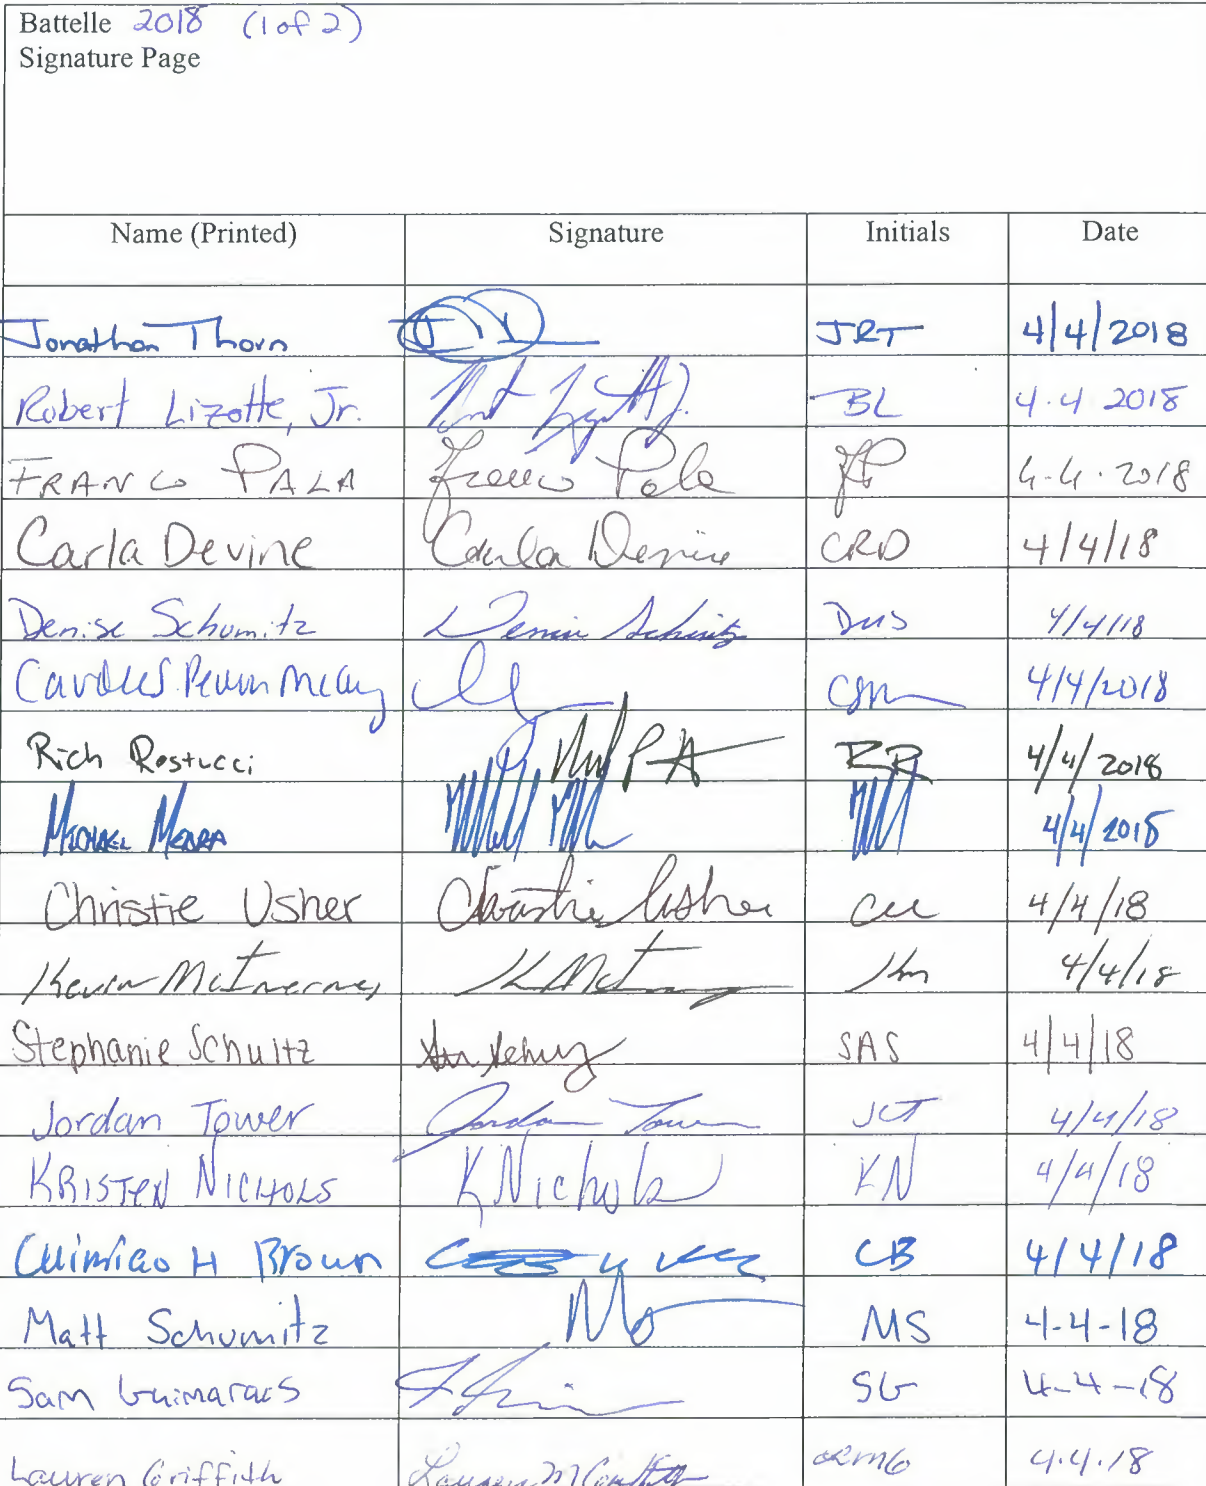 Battelle 2018 (1 of 2)
Signature Page
Name (Printed) Signature Initials Date
Jonathan Thorn JRT 4/4/2018
Robert Lizotte, Jr. BL 4.4 2018
FRANCO PALA Franco Pala FP 4-4.2018
Carla Devine Carla Devine CRD 4/4/18
Denise Schumitz Denise Schumitz DMS 4/4/18
4/4/2018
Rich Restucci RR 4/4/2018
MICHAEL MEARA 4/4/2018
Christie Usher Christie Usher CU 4/4/18
Kevin McInerney K McI KM 4/4/18
Stephanie Schultz SAS 4/4/18
Jordan Tower Jordan Tower JCT 4/4/18
KRISTEN NICHOLS K Nichols KN 4/4/18
H Brown CB 4/4/18
Matt Schumitz MS 4-4-18
Sam Guimaraes SG 4-4-18
Lauren Griffith Lauren M Griffith LRMG 4.4.18